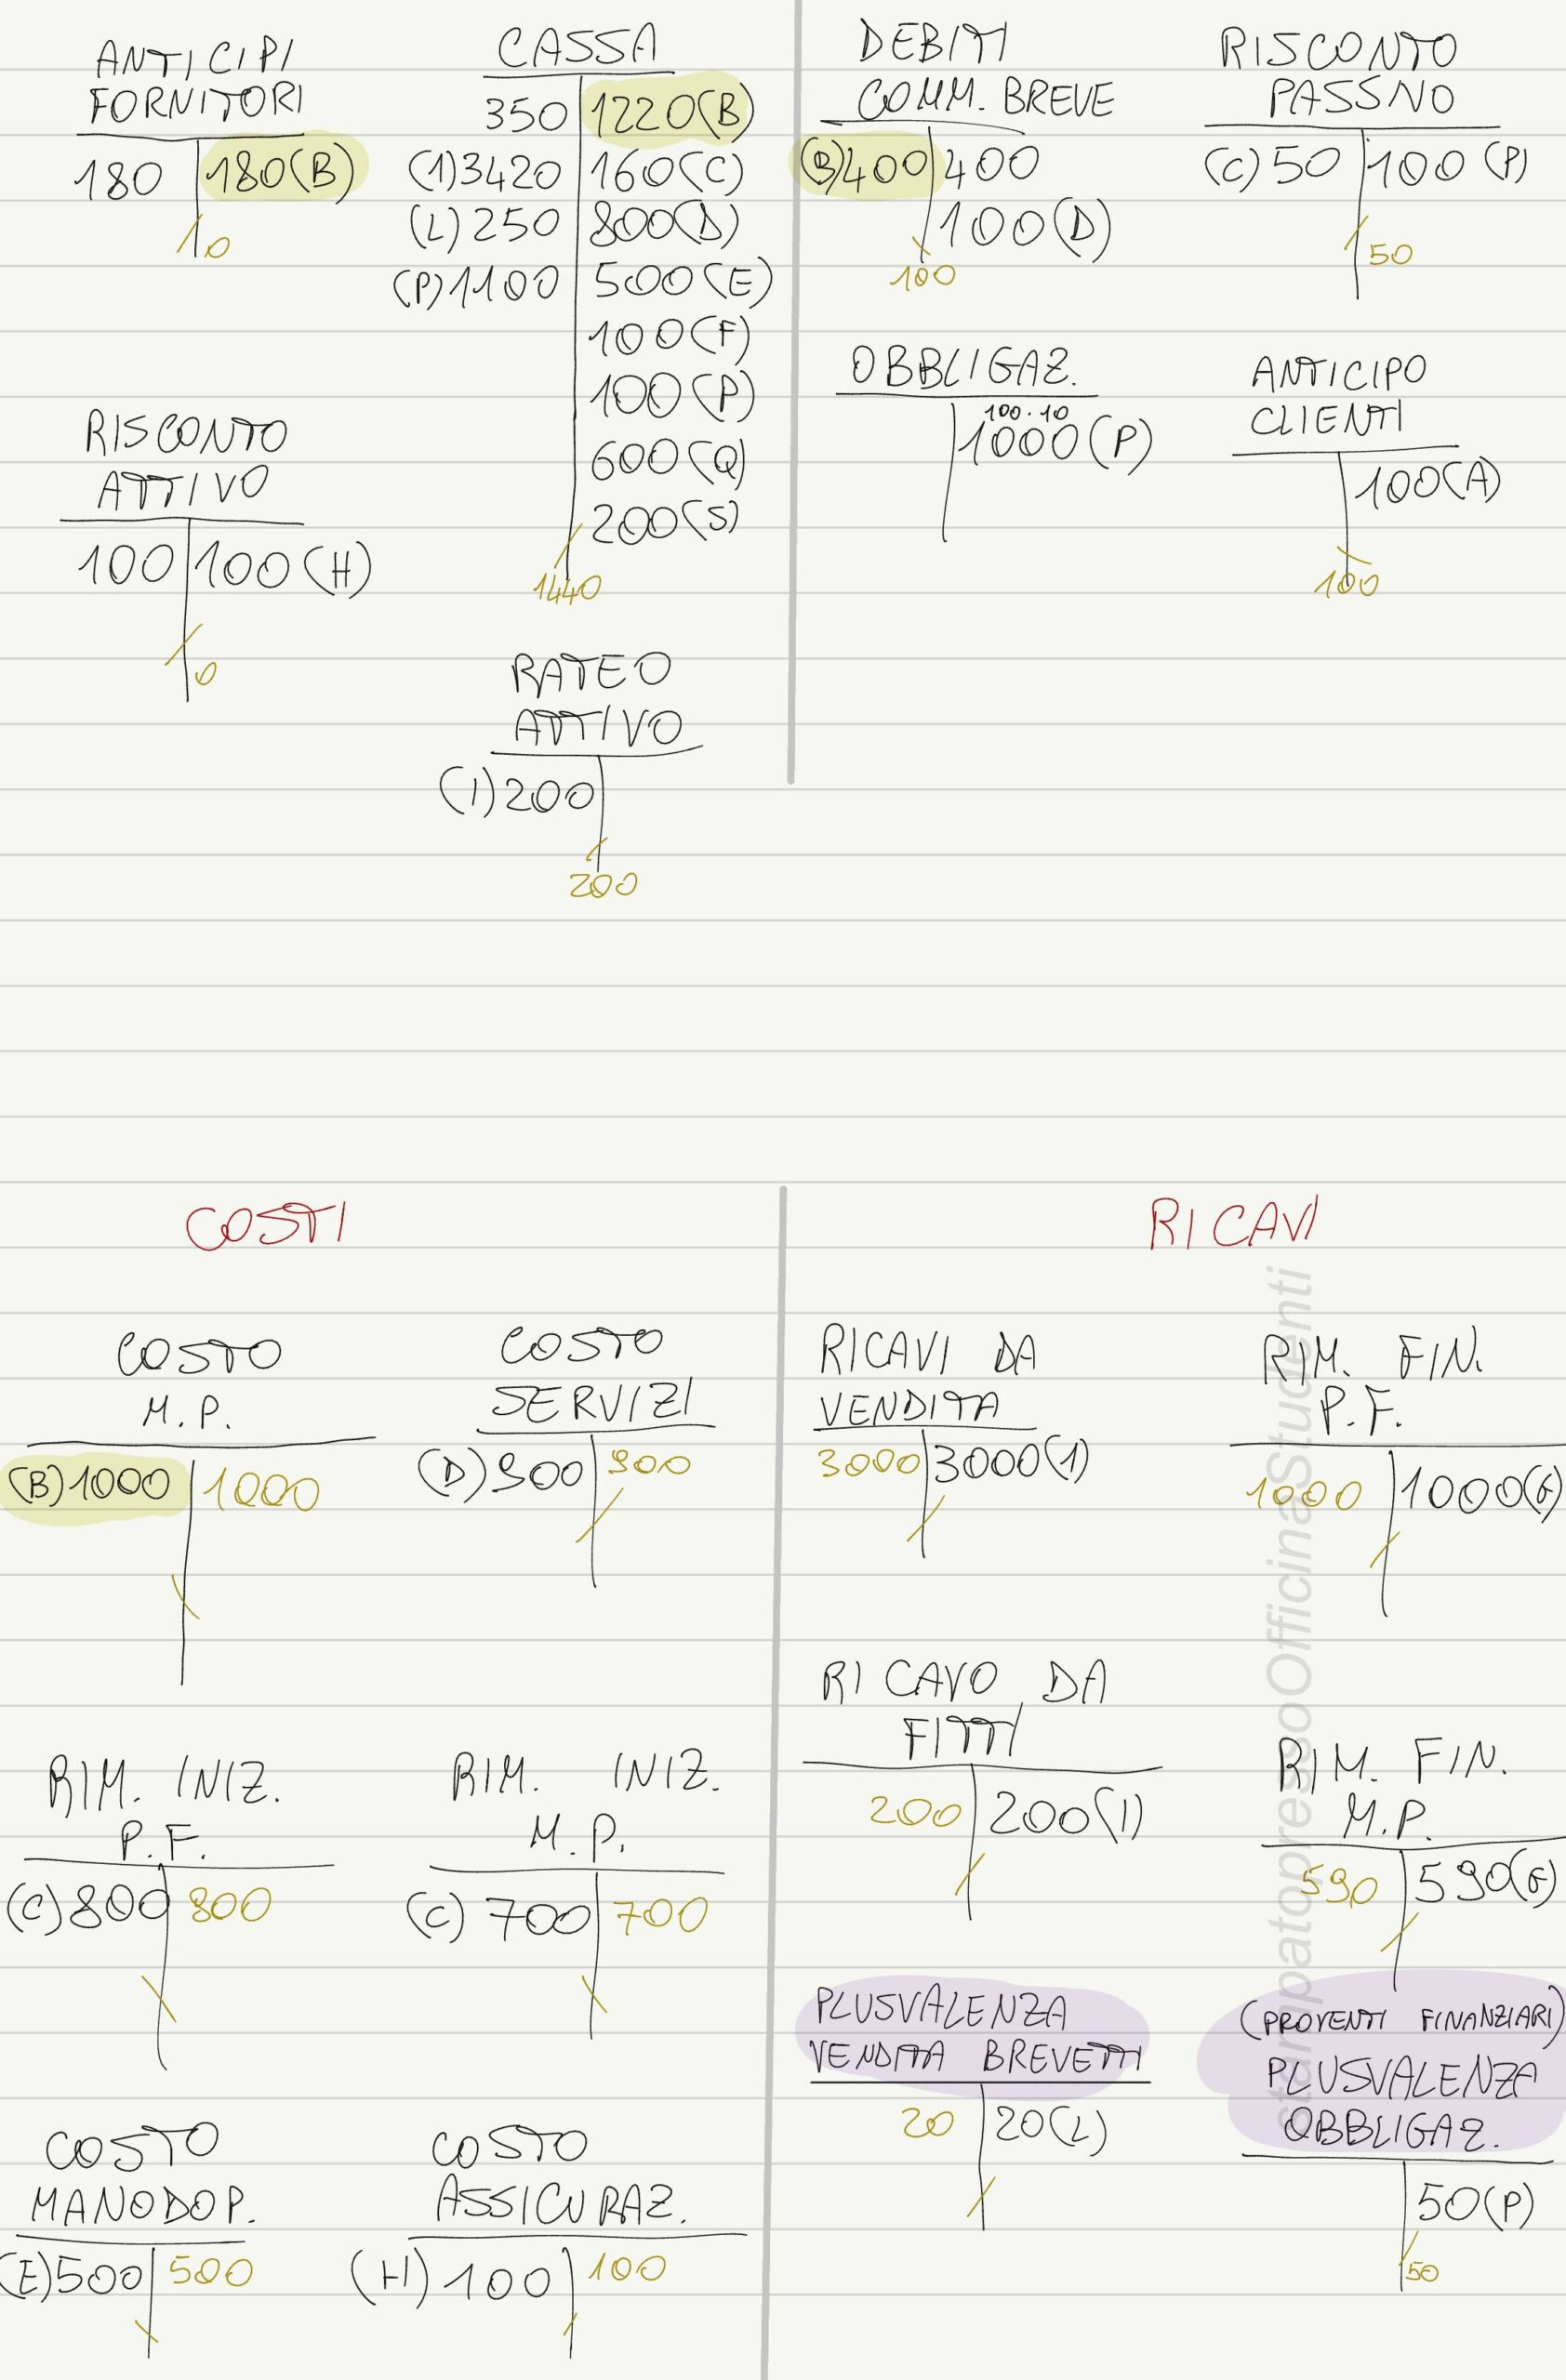 ANTICIPI
FORNITORI
180 | 180(B)
0
CASSA
350 | 1220(B)
(1)3420 | 160(C)
(L)250 | 800(D)
(P)1100 | 500(E)
100(F)
100(P)
600(Q)
200(S)
1440
RISCONTO
ATTIVO
100 | 100(H)
0
RATEO
ATTIVO
(I)200
200
DEBITI
COMM. BREVE
(B)400 | 400
100(D)
100
RISCONTO
PASSIVO
(C)50 | 100(P)
50
OBBLIGAZ.
100.10
1000(P)
ANTICIPO
CLIENTI
100(A)
100
COSTI
COSTO
M.P.
(B)1000 | 1000
COSTO
SERVIZI
(D)900 | 900
RIM. INIZ.
P.F.
(C)800 | 800
RIM. INIZ.
M.P.
(C)700 | 700
COSTO
MANODOP.
(E)500 | 500
COSTO
ASSICURAZ.
(H)100 | 100
RICAVI
RICAVI DA
VENDITA
3000 | 3000(1)
RIM. FIN.
P.F.
1000 | 1000(G)
RICAVO DA
FITTI
200 | 200(I)
RIM. FIN.
M.P.
590 | 590(G)
PLUSVALENZA
VENDITA BREVETTI
20 | 20(L)
(PROVENTI FINANZIARI)
PLUSVALENZA
OBBLIGAZ.
50(P)
50
stampatopressoOfficinaStudenti